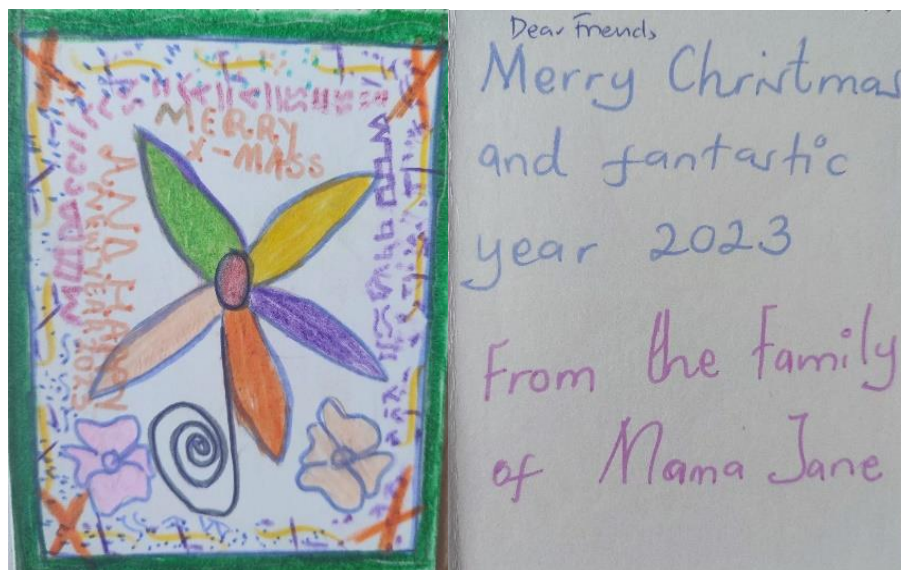 MERRY
X-MASS
AND HAPPY
NEW YEAR 2023
Dear Friends
Merry Christmas
and fantastic
year 2023
From the family
of Mama Jane